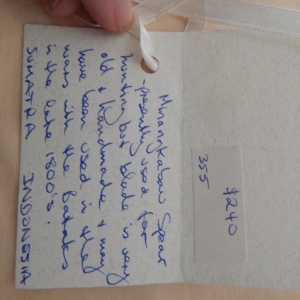 Minangkabau Spear
- presently used for
hunting but blade is very
old & handmade & may
have been used in the
wars with the Bataks
in the late 1800s.
SUMATRA INDONESIA
$240
355